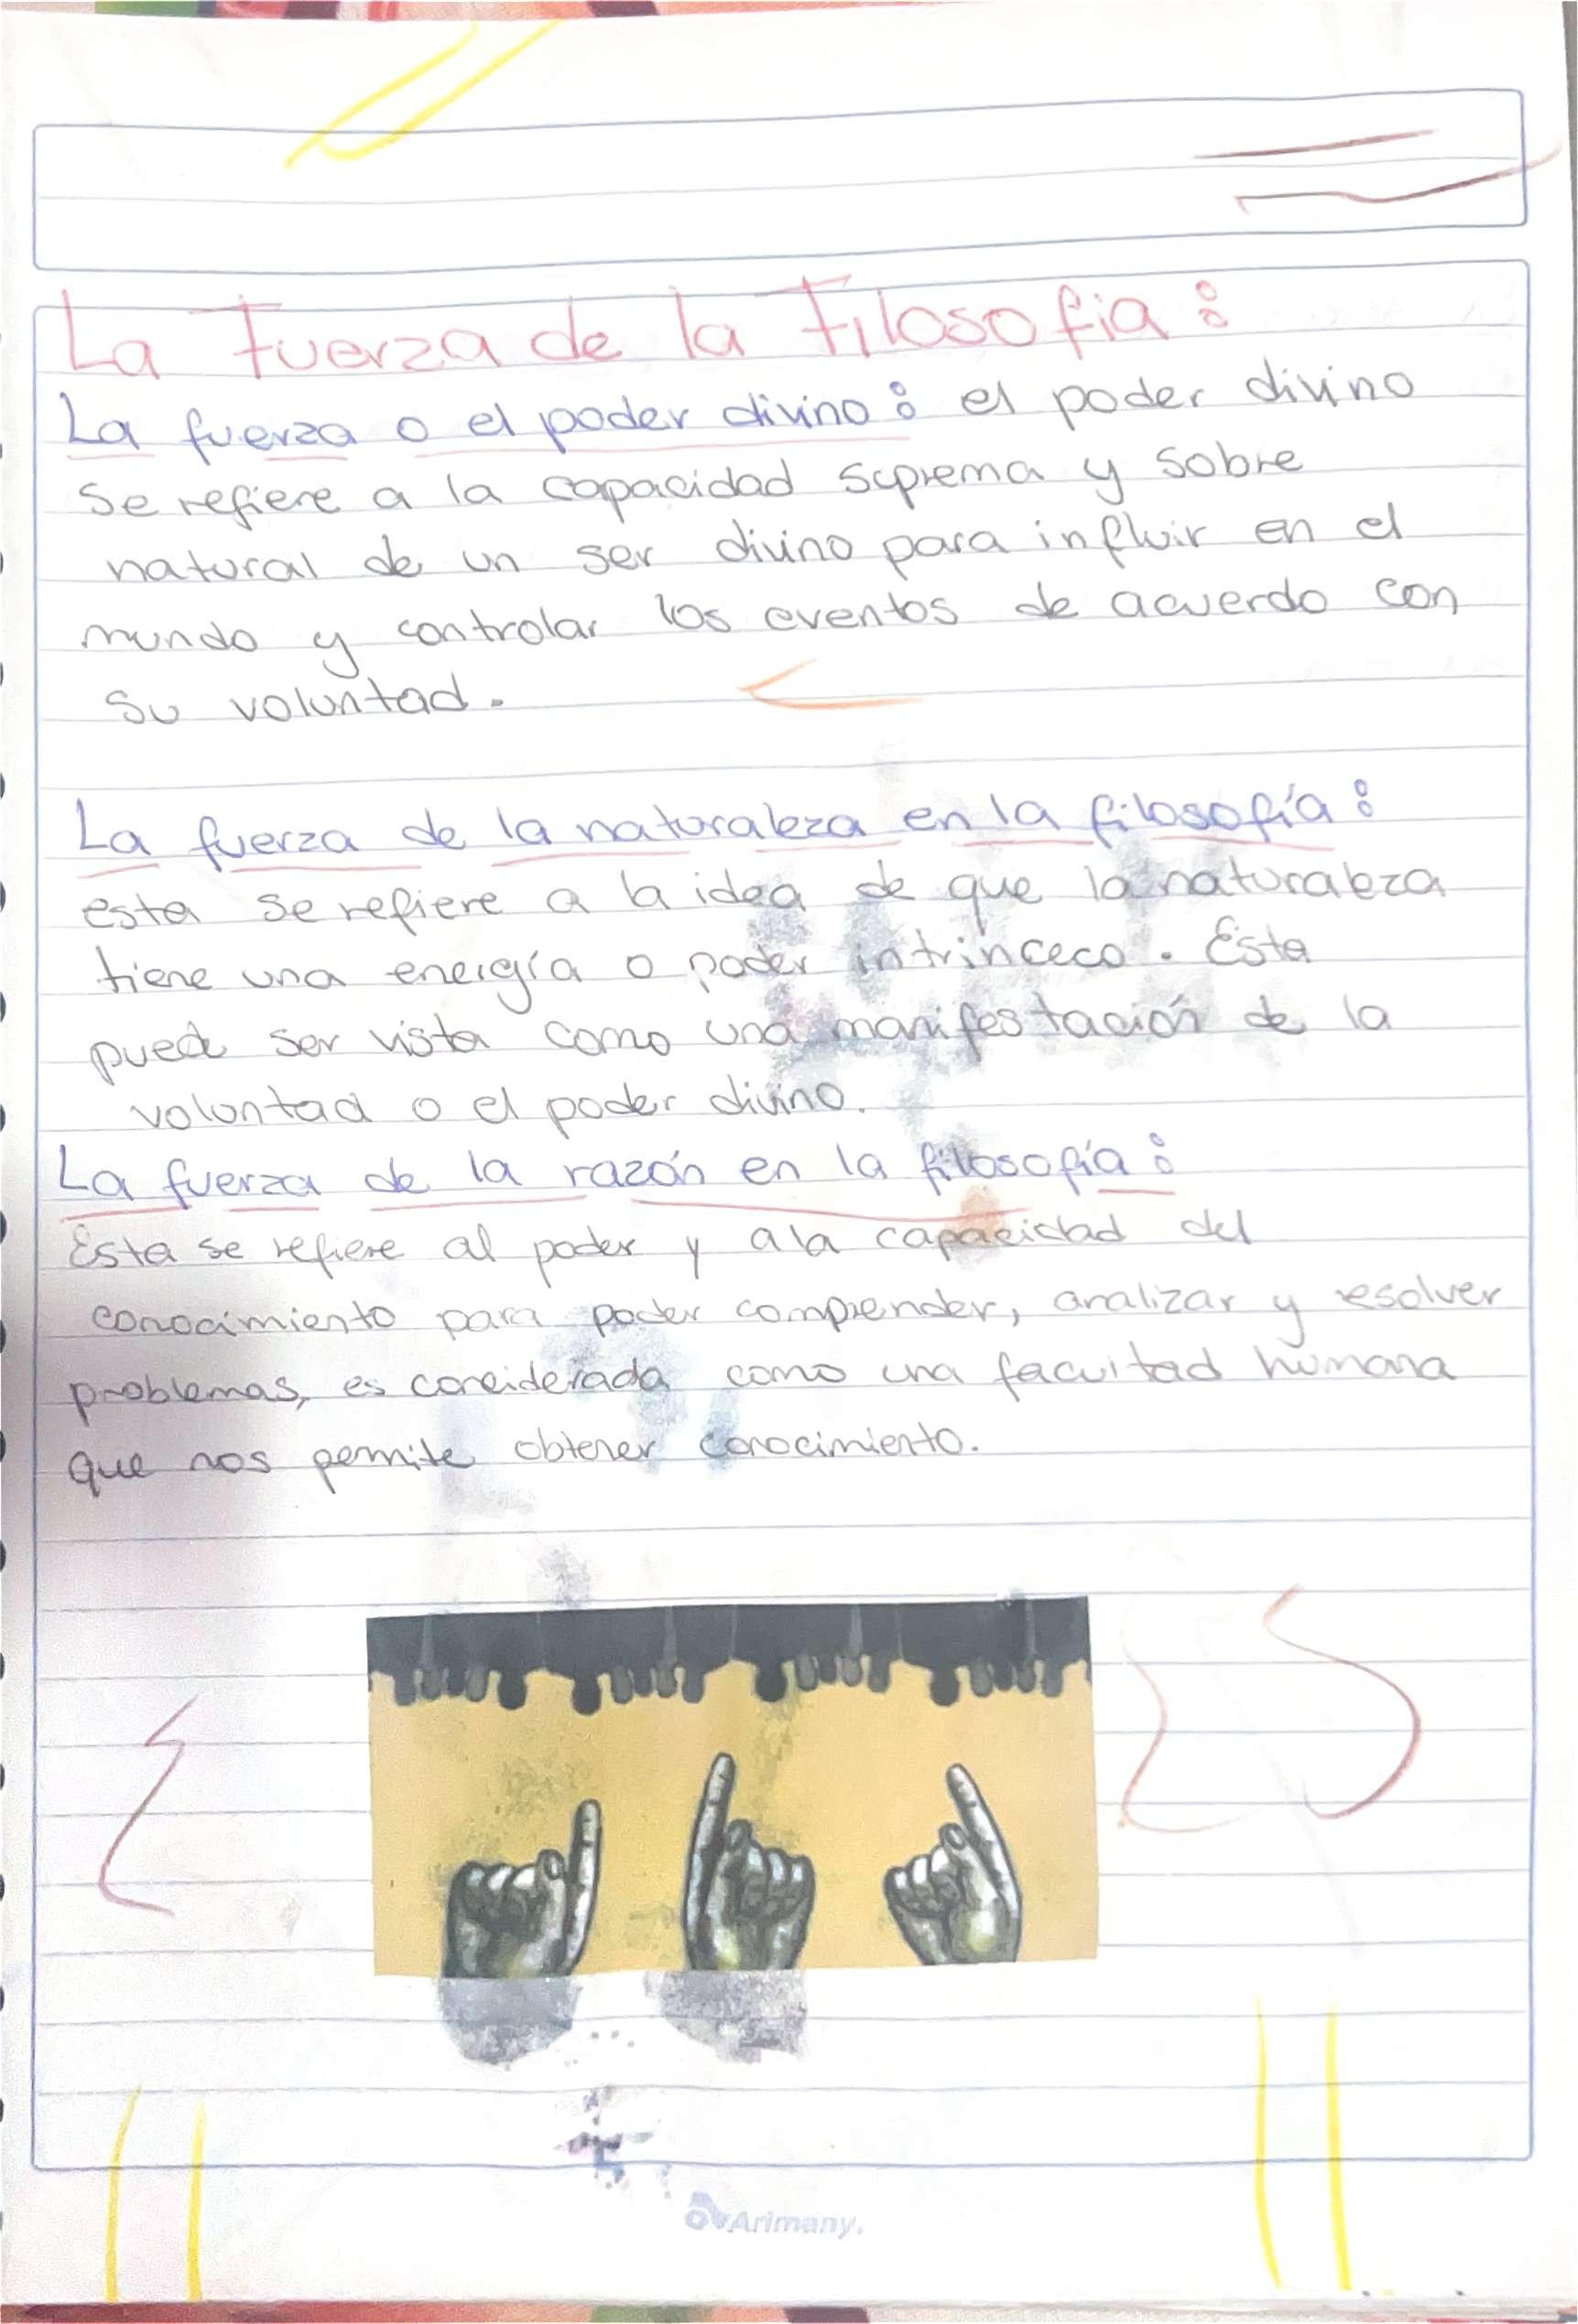 La Fuerza de la Filosofia:
La fuerza o el poder divino: el poder divino
se refiere a la capacidad suprema y sobre
natural de un ser divino para influir en el
mundo y controlar los eventos de acuerdo con
su voluntad.
La fuerza de la naturaleza en la filosofía:
esta se refiere a la idea de que la naturaleza
tiene una energía o poder intrinceco. Esta
puede ser vista como una manifestación de la
voluntad o el poder divino.
La fuerza de la razón en la filosofía:
Esta se refiere al poder y a la capacidad del
conocimiento para poder comprender, analizar y resolver
problemas, es considerada como una facultad humana
que nos permite obtener conocimiento.
Arimany.